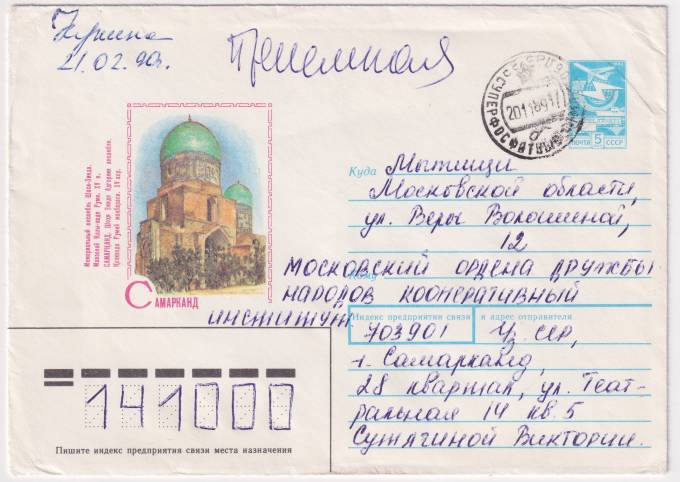 21.02.90г.
Приемная
СУПЕРФОСФАТНЫЙ
ПОЧТА 5 СССР
Мемориальный ансамбль Шахи-Зинда.
Мавзолей Казы-заде Руми. XV в.
САМАРҚАНД. Шохи Зинда ёдгорлик ансамбли.
Қозизода Румий мақбараси. XV аср.
САМАРКАНД
Куда Мытищи
Московской области,
ул. Веры Волошиной,
12
Кому
МОСКОВСКИЙ ОРДЕНА ДРУЖБЫ
НАРОДОВ КООПЕРАТИВНЫЙ
ИНСТИТУТ
Индекс предприятия связи и адрес отправителя
703901 Уз. ССР,
г. Самарканд,
28 квартал, ул. Теат-
ральная 14 кв. 5
Сутягиной Виктории.
141000
Пишите индекс предприятия связи места назначения